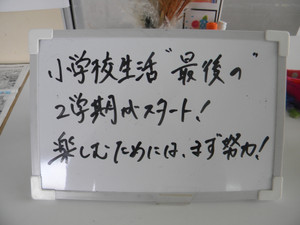 小学校生活"最後の"
2学期がスタート!
楽しむためには、まず努力!